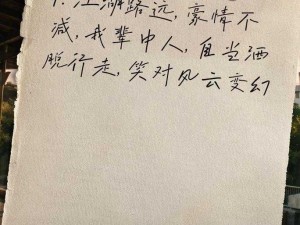 1.江湖路远,豪情不
减,我辈中人,自当洒
脱行走,笑对风云变幻